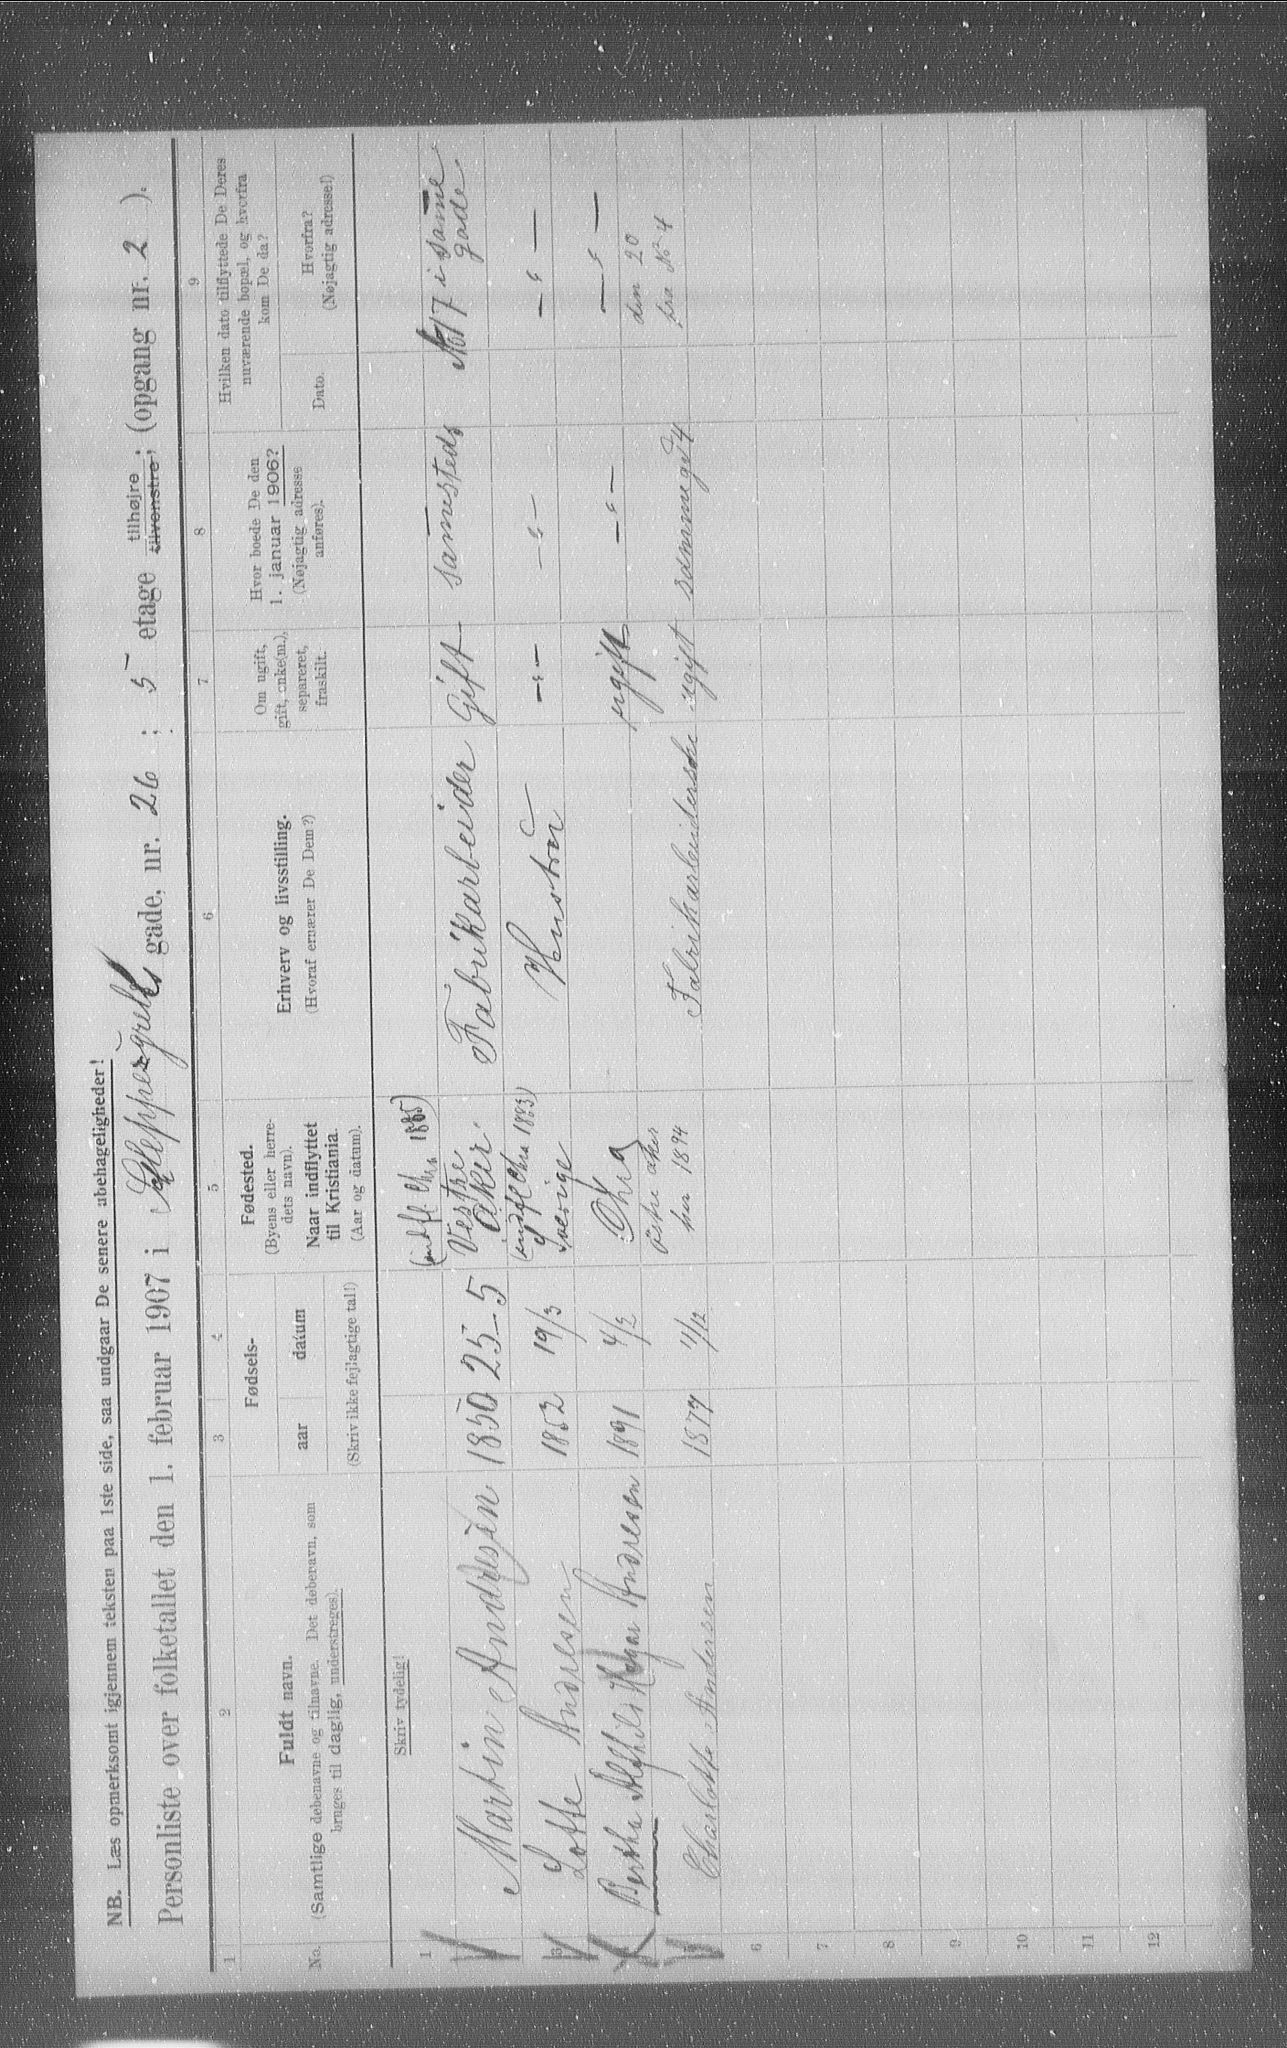 NB. Læs opmerksomt igjennem teksten paa 1ste side, saa undgaar De senere ubehageligheder!
Personliste over folketallet den 1. februar 1907 i gade, nr. 26 ; 5 etage tilhøjre, tilvenstre, (opgang nr. 2 ).
1 2 3 4 5 6 7 8 9
No.
Fuldt navn.
(Samtlige døbenavne og tilnavne. Det døbenavn, som
bruges til daglig, understreges).
Fødsels-
aar datum
(Skriv ikke fejlagtige tal!)
Fødested.
(Byens eller herre-
dets navn).
Naar indflyttet
til Kristiania.
(Aar og datum).
Erhverv og livsstilling.
(Hvoraf ernærer De Dem?)
Om ugift,
gift, enke(m.),
separeret,
fraskilt.
Hvor boede De den
1. januar 1906?
(Nøjagtig adresse
anføres).
Hvilken dato tilflyttede De Deres
nuværende bopæl, og hvorfra
kom De da?
Dato.
Hvorfra?
(Nøjagtig adresse!)
Skriv tydelig!
1
(indfl Chra 1885)
Martin Andresen 1850 25-5 Vestre Aker Fabrikarbeider Gift samesteds No 17 i same gade
3
(indfl Chra 1883)
Lotte Andresen 1852 19/3 Sverige Hustru —"— —"— —"—
Bertha Alfhild Andresen 1891 Chra ugift —"— —"—
Charlotte Andersen 1877 11/12 østre aker her 1894 Fabrikarbeiderske ugift samme gd 4 den 20 fra No 4
6
7
8
9
10
11
12